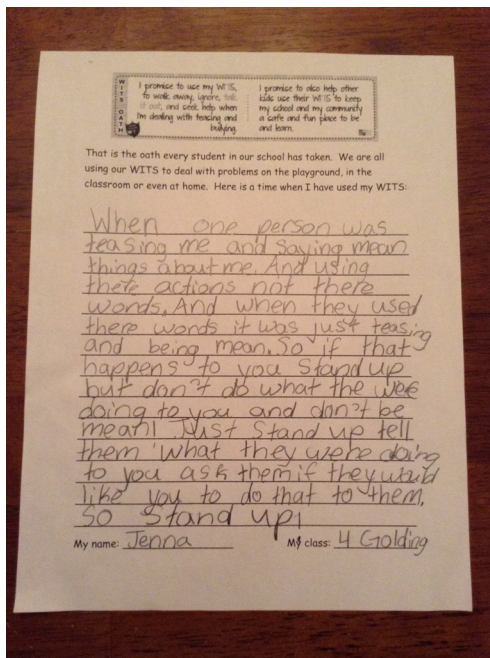 WITS OATH
I promise to use my WITS,
to walk away, ignore, talk
it out, and seek help when
I'm dealing with teasing and
bullying.
I promise to also help other
kids use their WITS to keep
my school and my community
a safe and fun place to be
and learn.
That is the oath every student in our school has taken. We are all
using our WITS to deal with problems on the playground, in the
classroom or even at home. Here is a time when I have used my WITS:
When one person was
teasing me and saying mean
things about me. And using
there actions not there
words. And when they used
there words it was just teasing
and being mean. So if that
happens to you Stand up
but don't do what the were
doing to you and don't be
mean! Just Stand up tell
them what they were doing
to you ask them if they would
like you to do that to them.
So Stand up!
My name: Jenna My class: 4 Golding